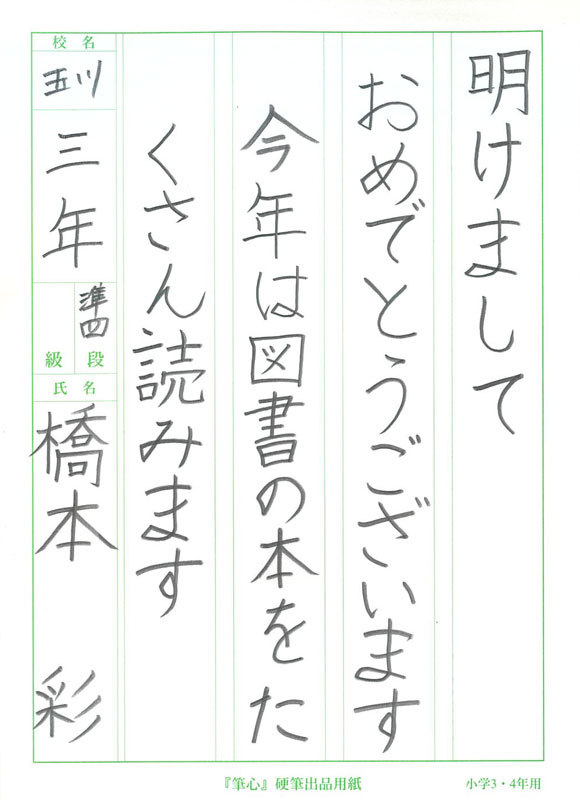 明けまして
おめでとうございます
今年は図書の本をた
くさん読みます
校名
玉川
三年
準四
級 段
氏名
橋本 彩
『筆心』硬筆出品用紙
小学3・4年用